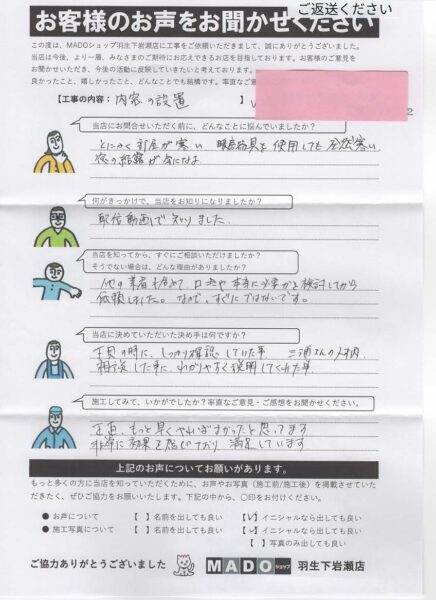 ご返送ください
お客様のお声をお聞かせください
この度は、MADOショップ羽生下岩瀬店に工事をご依頼いただきまして、誠にありがとうございました。
当店は今後、より一層、みなさまのご期待にお応えできるお店を目指しております。お客様のご意見を
お聞かせいただき、今後の活動に反映していきたいと考えております。
良かったこと、嬉しかったこと、どんなことでも結構です。率直なご意
【工事の内容: 内窓の設置 】
2
当店にお問合せいただく前に、どんなことに悩んでいましたか?
とにかく部屋が寒い 暖房器具を使用しても全然寒い
窓の結露が気になる
何がきっかけで、当店をお知りになりましたか?
配信動画で知りました。
当店を知ってから、すぐにご相談いただけましたか?
そうでない場合は、どんな理由がありましたか?
他の業者も含めて 口コミや本当に必要かを検討してから
依頼しました。なので、すぐにではないです。
当店に決めていただいた決め手は何ですか?
下見の時に、しっかり確認していた事 三浦さんの人柄
相談した事に、わかりやすく説明してくれた事
施工してみて、いかがでしたか?率直なご意見・ご感想をお聞かせください。
正直、もっと早くやればよかったと思ってます
非常に効果を感じており 満足しています
上記のお声についてお願いがあります。
もっと多くの方に当店を知っていただくために、お声やお写真(施工前/施工後)を掲載させていた
だきたく、ぜひご協力をお願いいたします。下記の中から、〇印をお付けください。
● お声について 【 】名前を出しても良い 【✓】イニシャルなら出しても良い
● 施工写真について 【 】名前を出しても良い 【✓】イニシャルなら出しても良い
【 】写真のみ出しても良い
ご協力ありがとうございました MADOショップ 羽生下岩瀬店